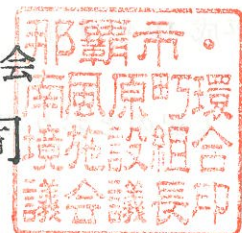 会
那覇市・
南風原町環
境施設組合
議会議長印